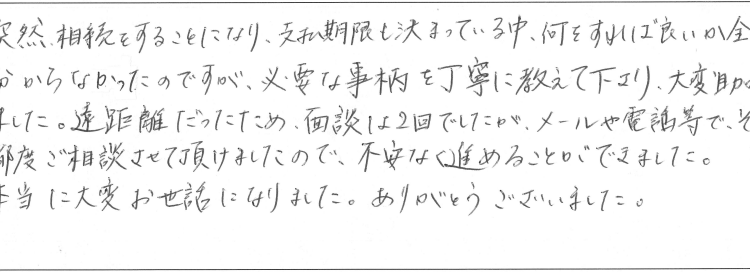 突然、相続をすることになり、支払期限も決まっている中、何をすれば良いか全
分からなかったのですが、必要な事柄を丁寧に教えて下さり、大変助か
ました。遠距離だったため、面談は2回でしたが、メールや電話等で、そ
都度ご相談させて頂けましたので、不安なく進めることができました。
本当に大変お世話になりました。ありがとうございました。